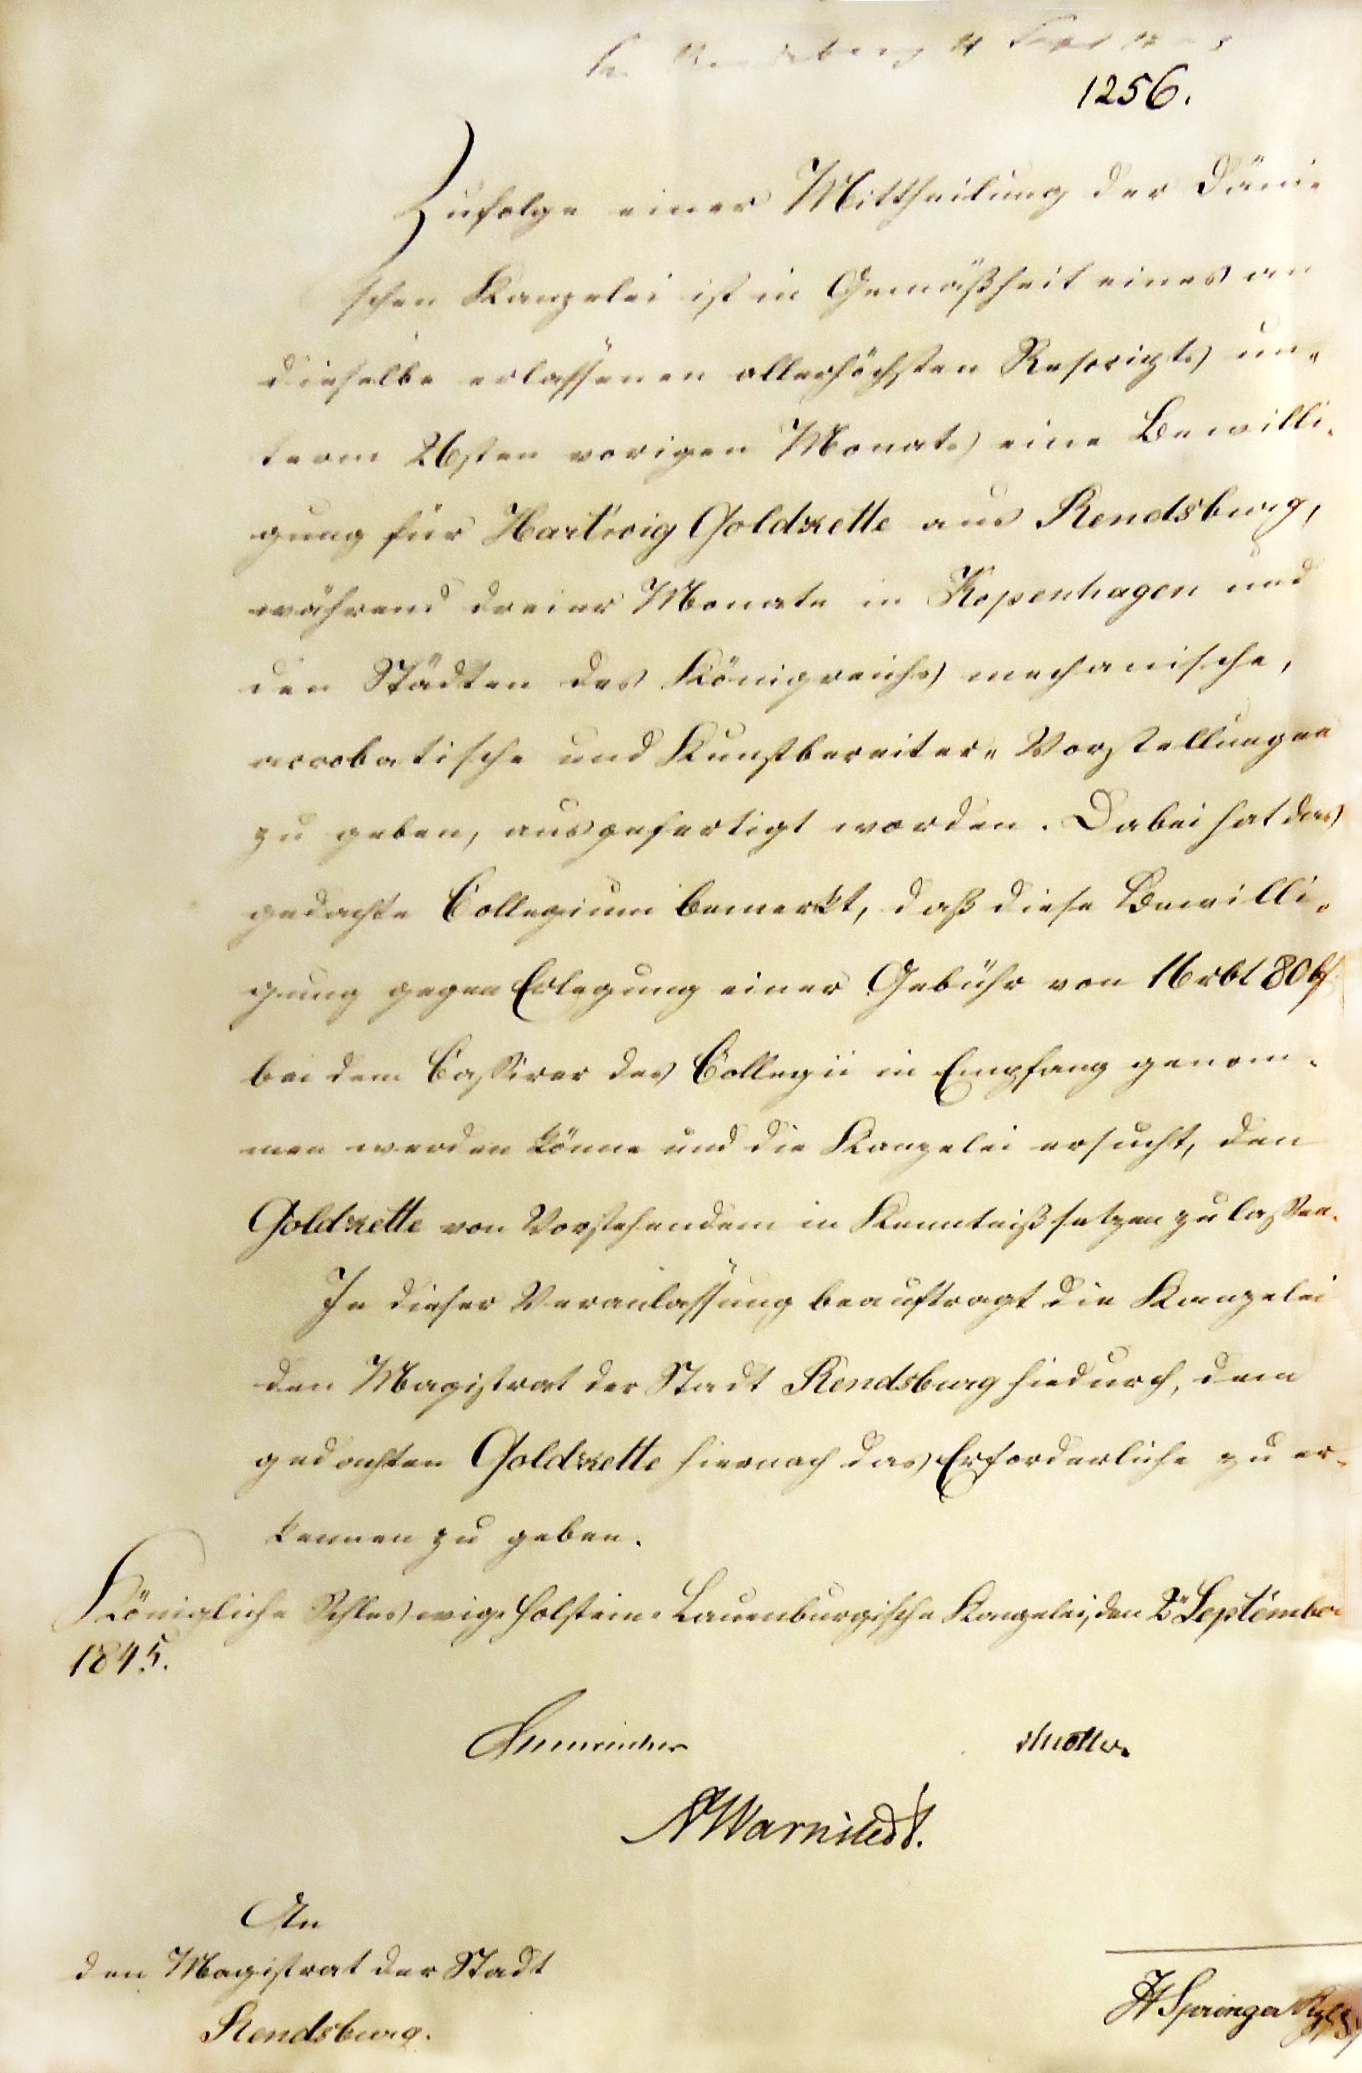 1256.
Zufolge einer Mittheilung der Däni-
schen Kanzelei ist in Gemäßheit eines an
dieselbe erlassenen allerhöchsten Rescripts un-
term 26sten vorigen Monats eine Bewilli-
gung für Hartwig Goldkette aus Rendsburg,
während dreier Monate in Kopenhagen und
den Städten des Königreichs mechanische,
acrobatische und Kunstbereiter-Vorstellungen
zu geben, ausgefertigt worden. Dabei hat das
gedachte Collegium bemerkt, daß diese Bewilli-
gung gegen Erlegung einer Gebühr von 16 rbt 80 bß
bei dem Cassirer des Collegii in Empfang genom-
men werden könne und die Kanzelei ersucht, den
Goldkette von Vorstehendem in Kenntniß setzen zu lassen.
In dieser Veranlassung beauftragt die Kanzelei
den Magistrat der Stadt Rendsburg hiedurch, dem
gedachten Goldkette hiernach das Erforderliche zu er-
kennen zu geben.
Königliche Schleswig-Holstein-Lauenburgische Kanzelei, den 2n September
1845.
AWarnstedt.
An
den Magistrat der Stadt
Rendsburg.
Springer